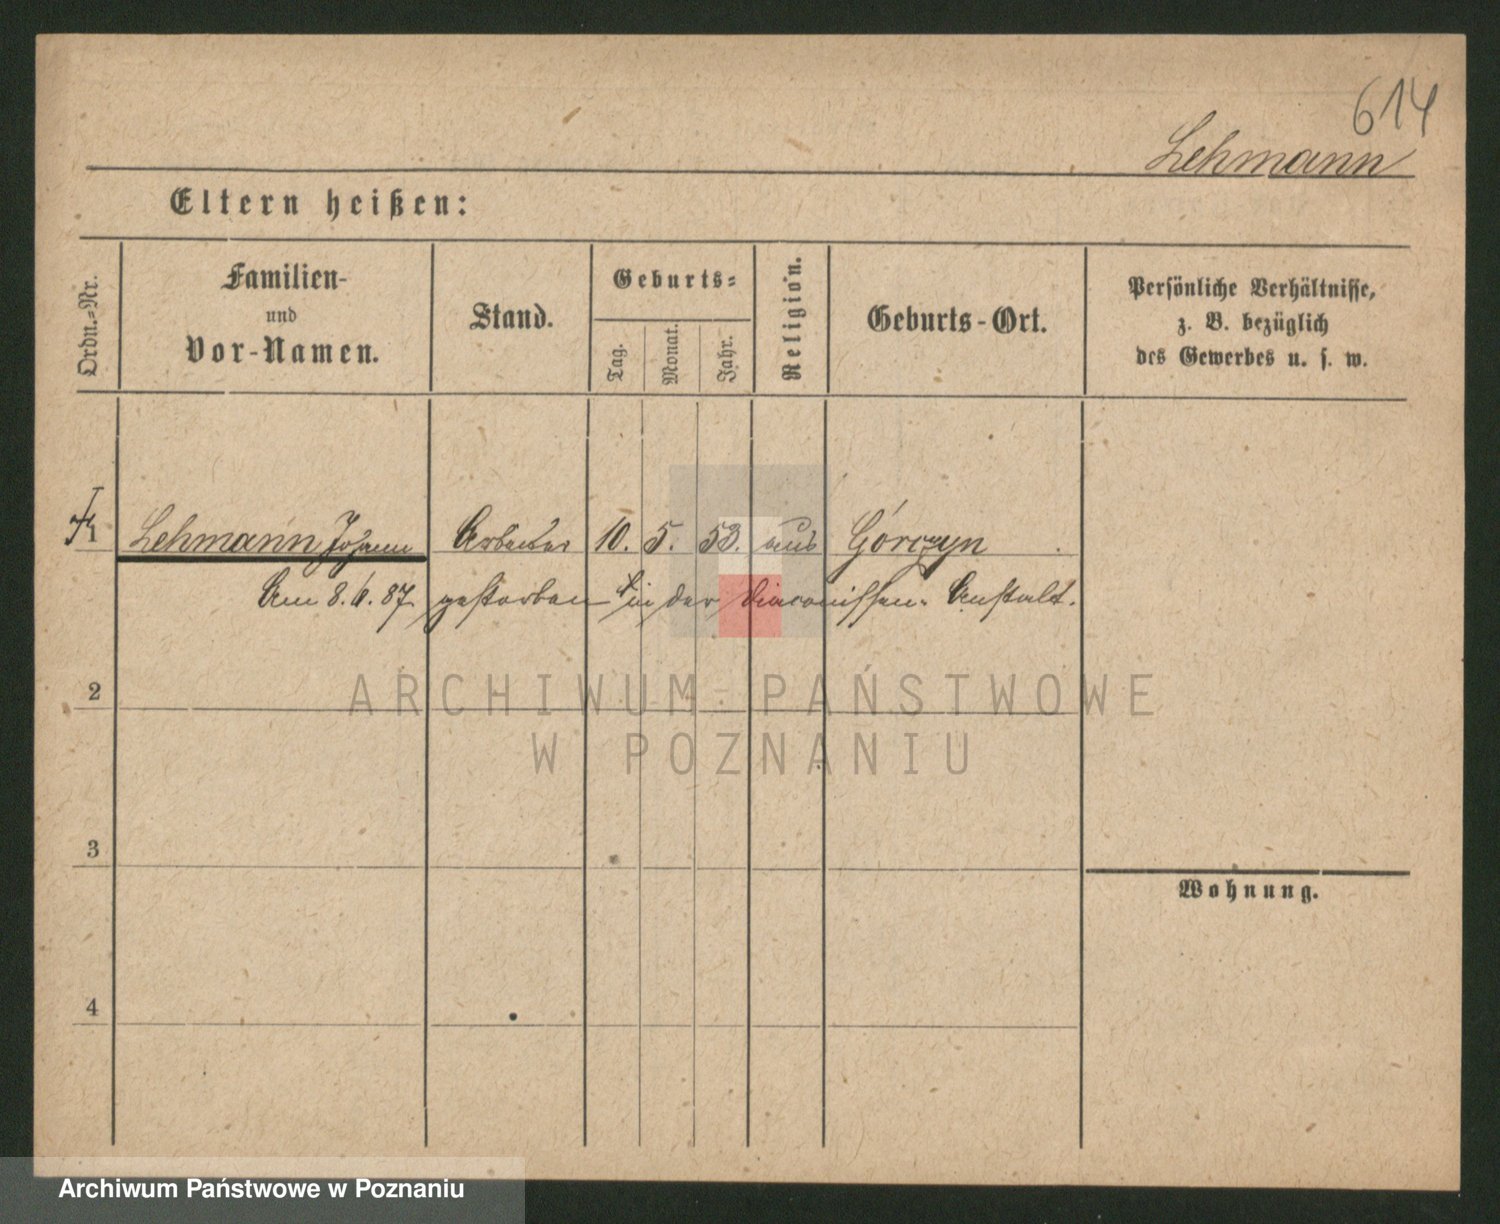 614
Lehmann
Eltern heißen:
Ordn.-Nr.
Familien-
und
Vor-Namen.
Stand.
Geburts-
Tag.
Monat.
Jahr.
Religion.
Geburts-Ort.
Persönliche Verhältnisse,
z. B. bezüglich
des Gewerbes u. s. w.
1 Lehmann Johann Arbeiter 10. 5. 53. aus Górczyn
Am 8. 6. 87 gestorben in der Diaconissen-Anstalt.
2
ARCHIWUM PAŃSTWOWE
W POZNANIU
3
Wohnung.
4
Archiwum Państwowe w Poznaniu